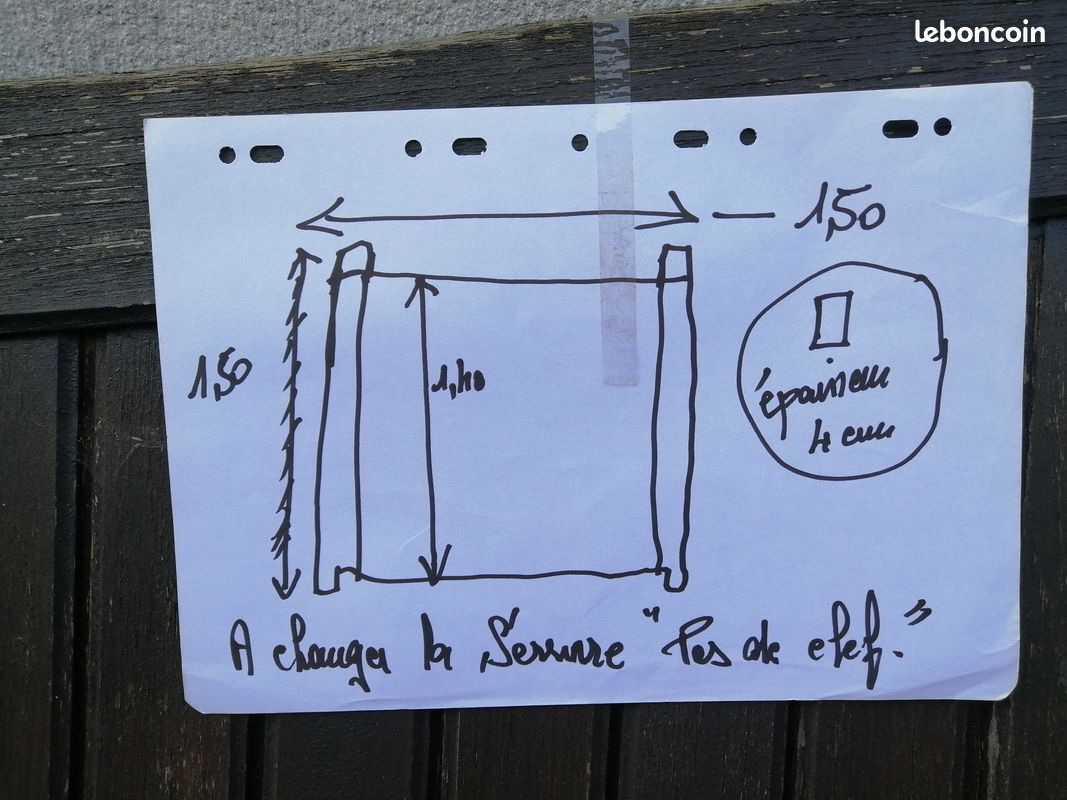 leboncoin
1,50
1,50
1,40
épaisseur
4 cm
A changer la Serrure "Pas de clef."